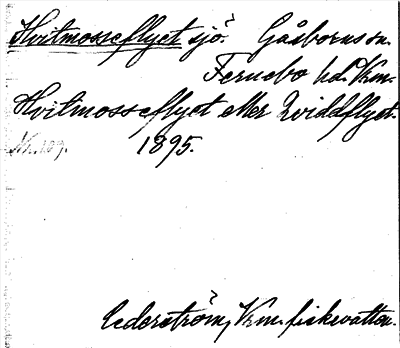 Hvitmosseflyet sjö. Gåsborns sn.
Fernebo hd. Vrm.
Hvitmosseflyet eller Qviddflyet.
1895.
Cederström, Vrm. fiskevatten.